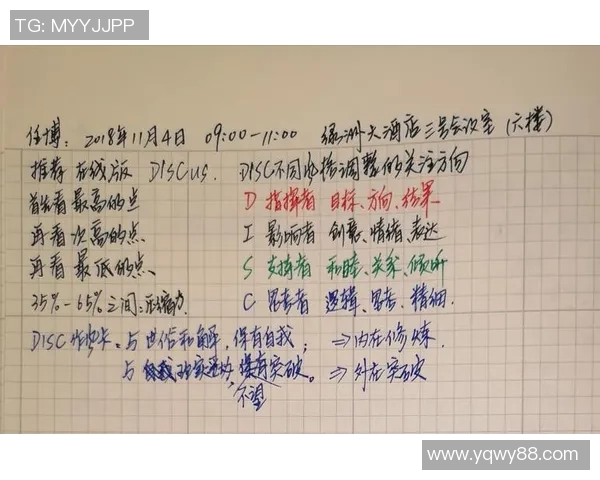 TG: MYYJJPP
任博: 2018年11月4日 09:00-11:00 绿洲大酒店三号会议室 (六楼)
推荐在线版 DISCus. DISC不同风格调整的关注方向
首先看最高的点 D 指挥者 目标、方向、结果
再看次高的点 I 影响者 创意、情绪、表达
再看最低的点 S 支持者 和睦、关系、倾听
35%-65%之间:压缩 C 思考者 逻辑、思考、精细.
DISC 与世俗和解,保有自我; ⇒内在修炼
与 突破。⇒外在突破
不望
www.yqwy88.com